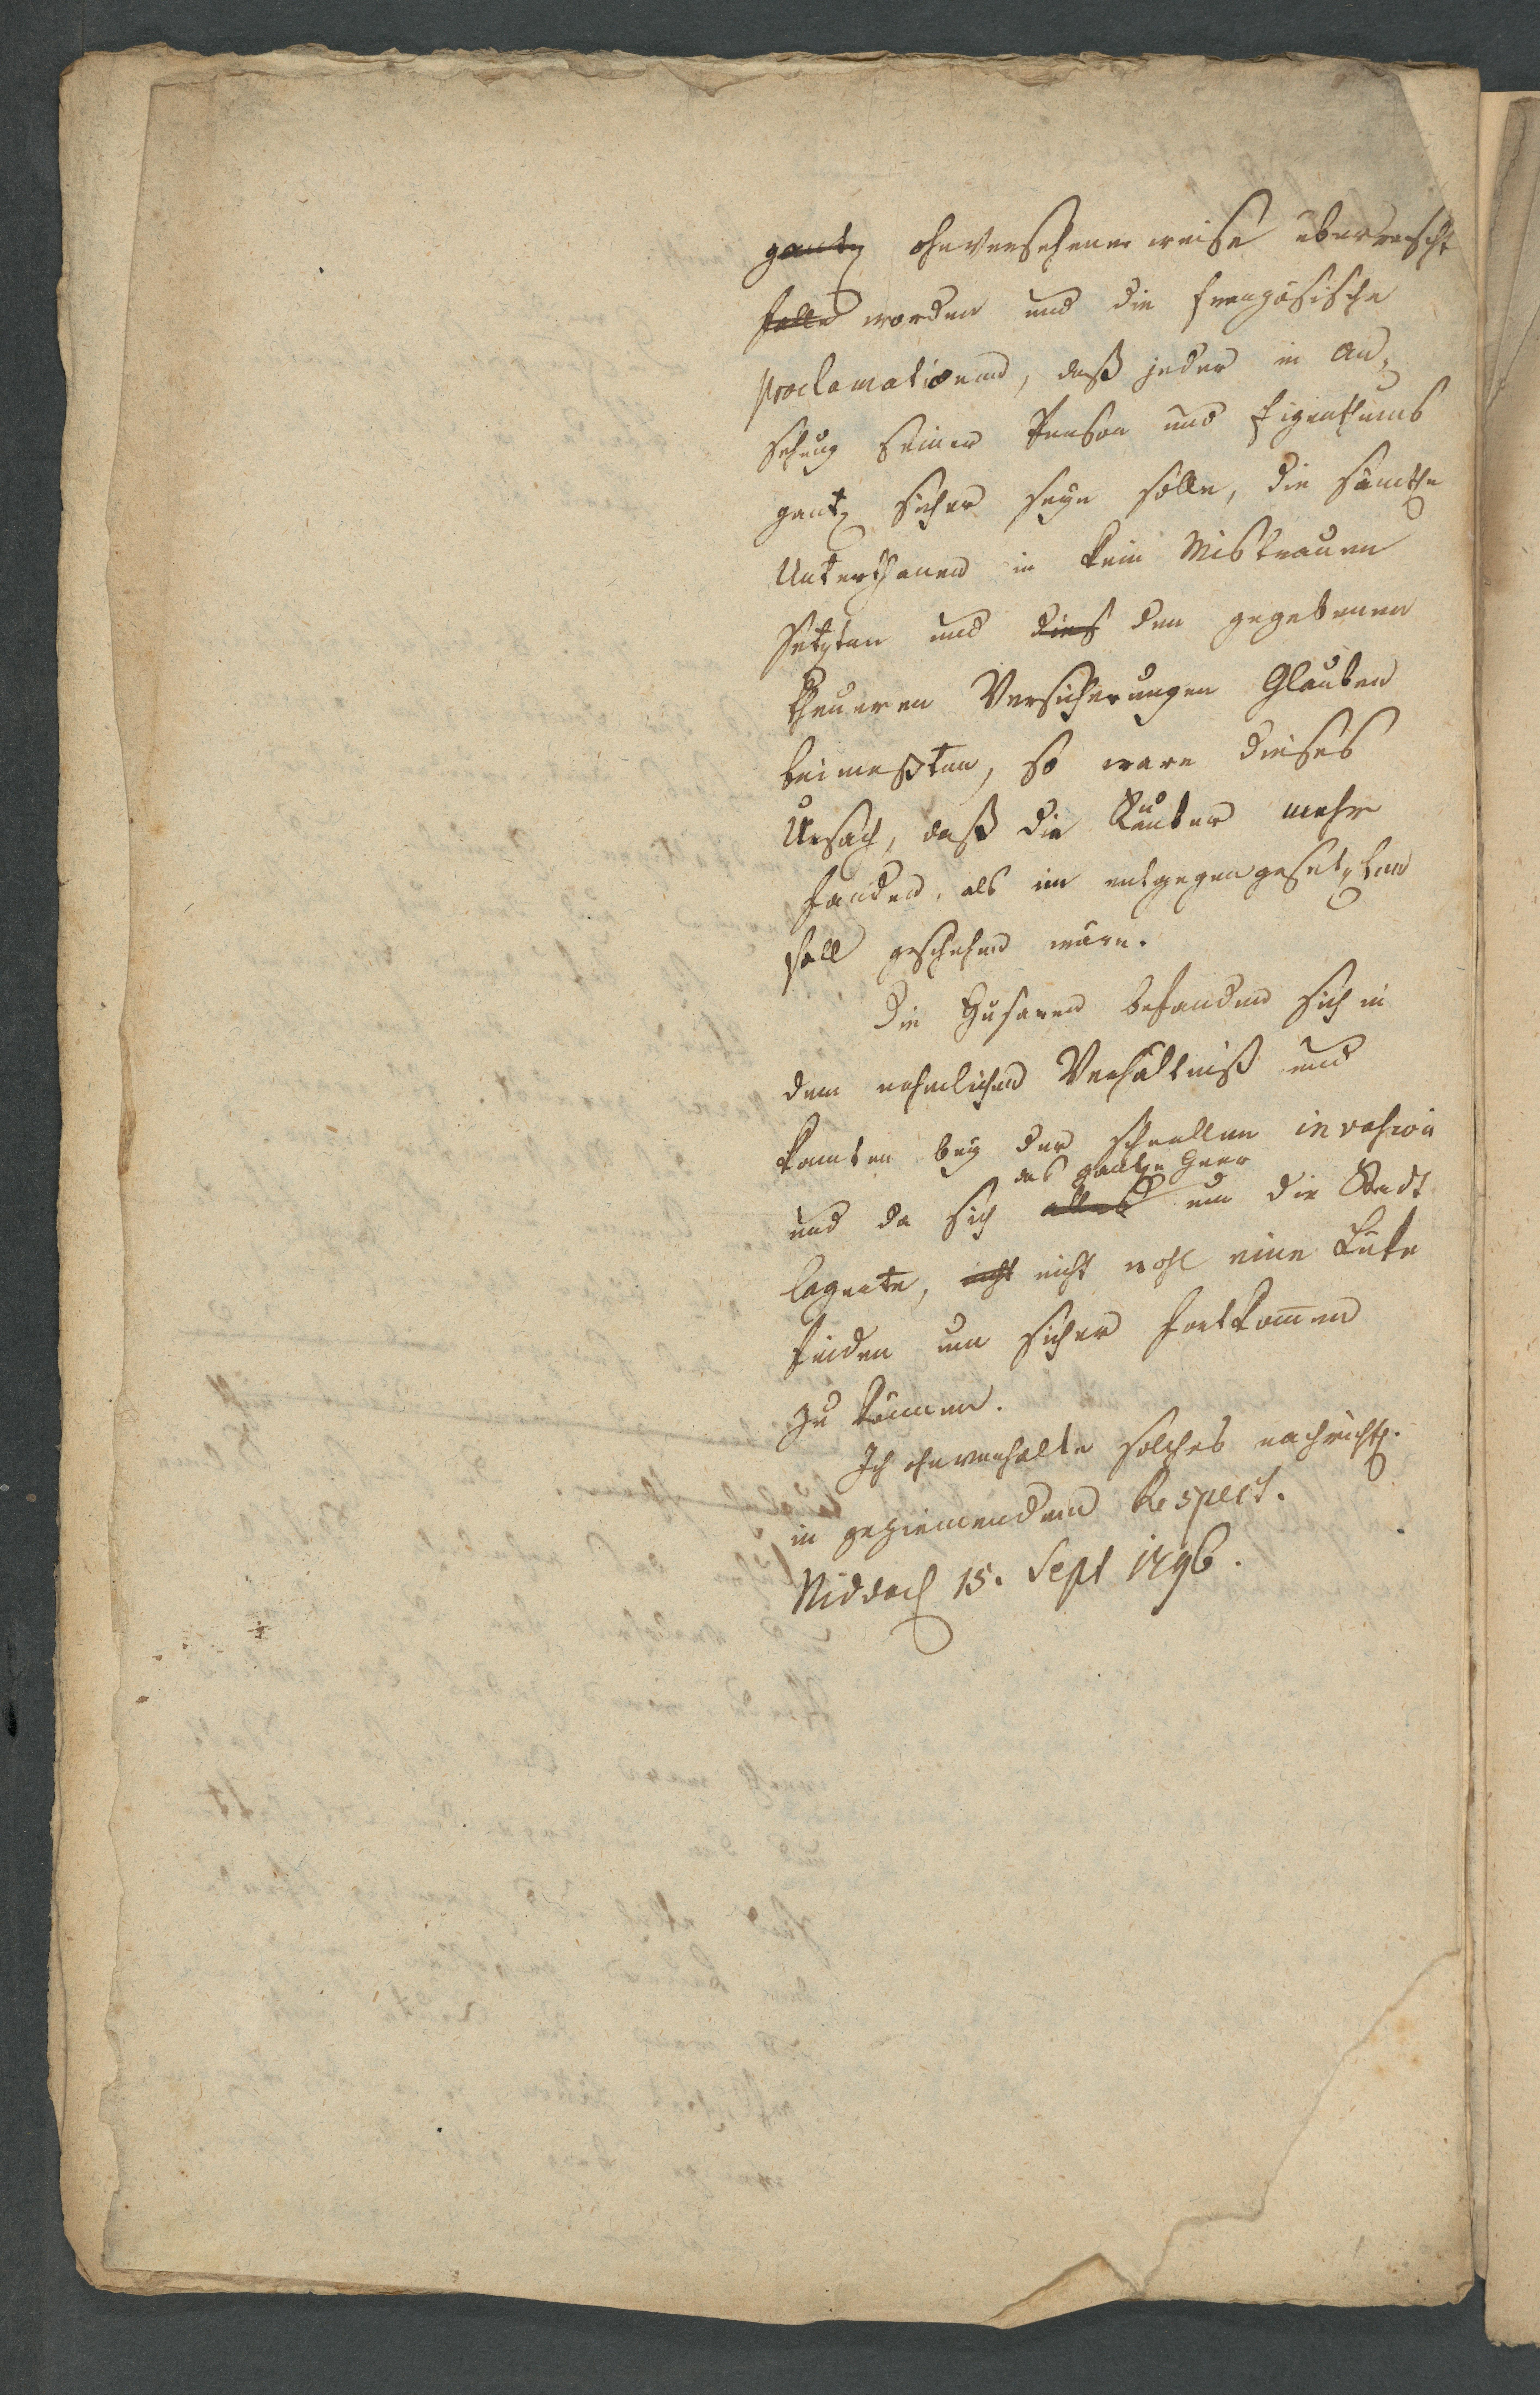 gantz ohnversehener weise überrascht
falle worden und die französische
Proclamationen, daß jeder in An-
sehung seiner Person und Eigenthums
gantz sicher seyn solle, die sämtle
Unterthanen in kein Mistrauen
setzten und dies den gegebenen
theueren Versicherungen Glauben
beimeßten, so ware dieses
Ursach, daß die Räuber mehr
fanden, als im entgegengesetzten
Fall geschehen wäre.
Die Husaren befanden sich in
dem nehmlichen Verhältniß und
konnten bey der schnellen invasion
das gantze Heer
und da sich alles um die Stadt
lagerte, nicht nicht wohl eine Lüke
finden um sicher fortkom̄en
zu können.
Ich ohnverhalte solches nachrichtl.
in geziemendem Respect.
Nidda d 15. Sept 1796.